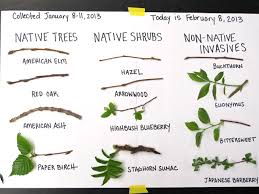 Collected January 8-11, 2013
Today is February 8, 2013
NATIVE TREES
NATIVE SHRUBS
NON-NATIVE
INVASIVES
AMERICAN ELM
RED OAK
AMERICAN ASH
PAPER BIRCH
HAZEL
ARROWWOOD
HIGHBUSH BLUEBERRY
STAGHORN SUMAC
BUCKTHORN
EUONYMUS
BITTERSWEET
JAPANESE BARBERRY